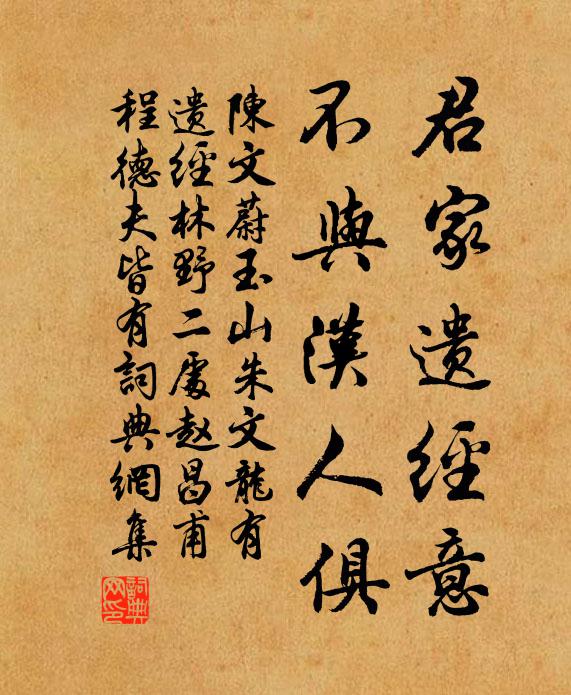 君家遗經意
不與漢人俱
陳文蔚玉山朱文龍有
遗經林野二處赵昌甫
程德夫皆有詞典網集
詞典網印